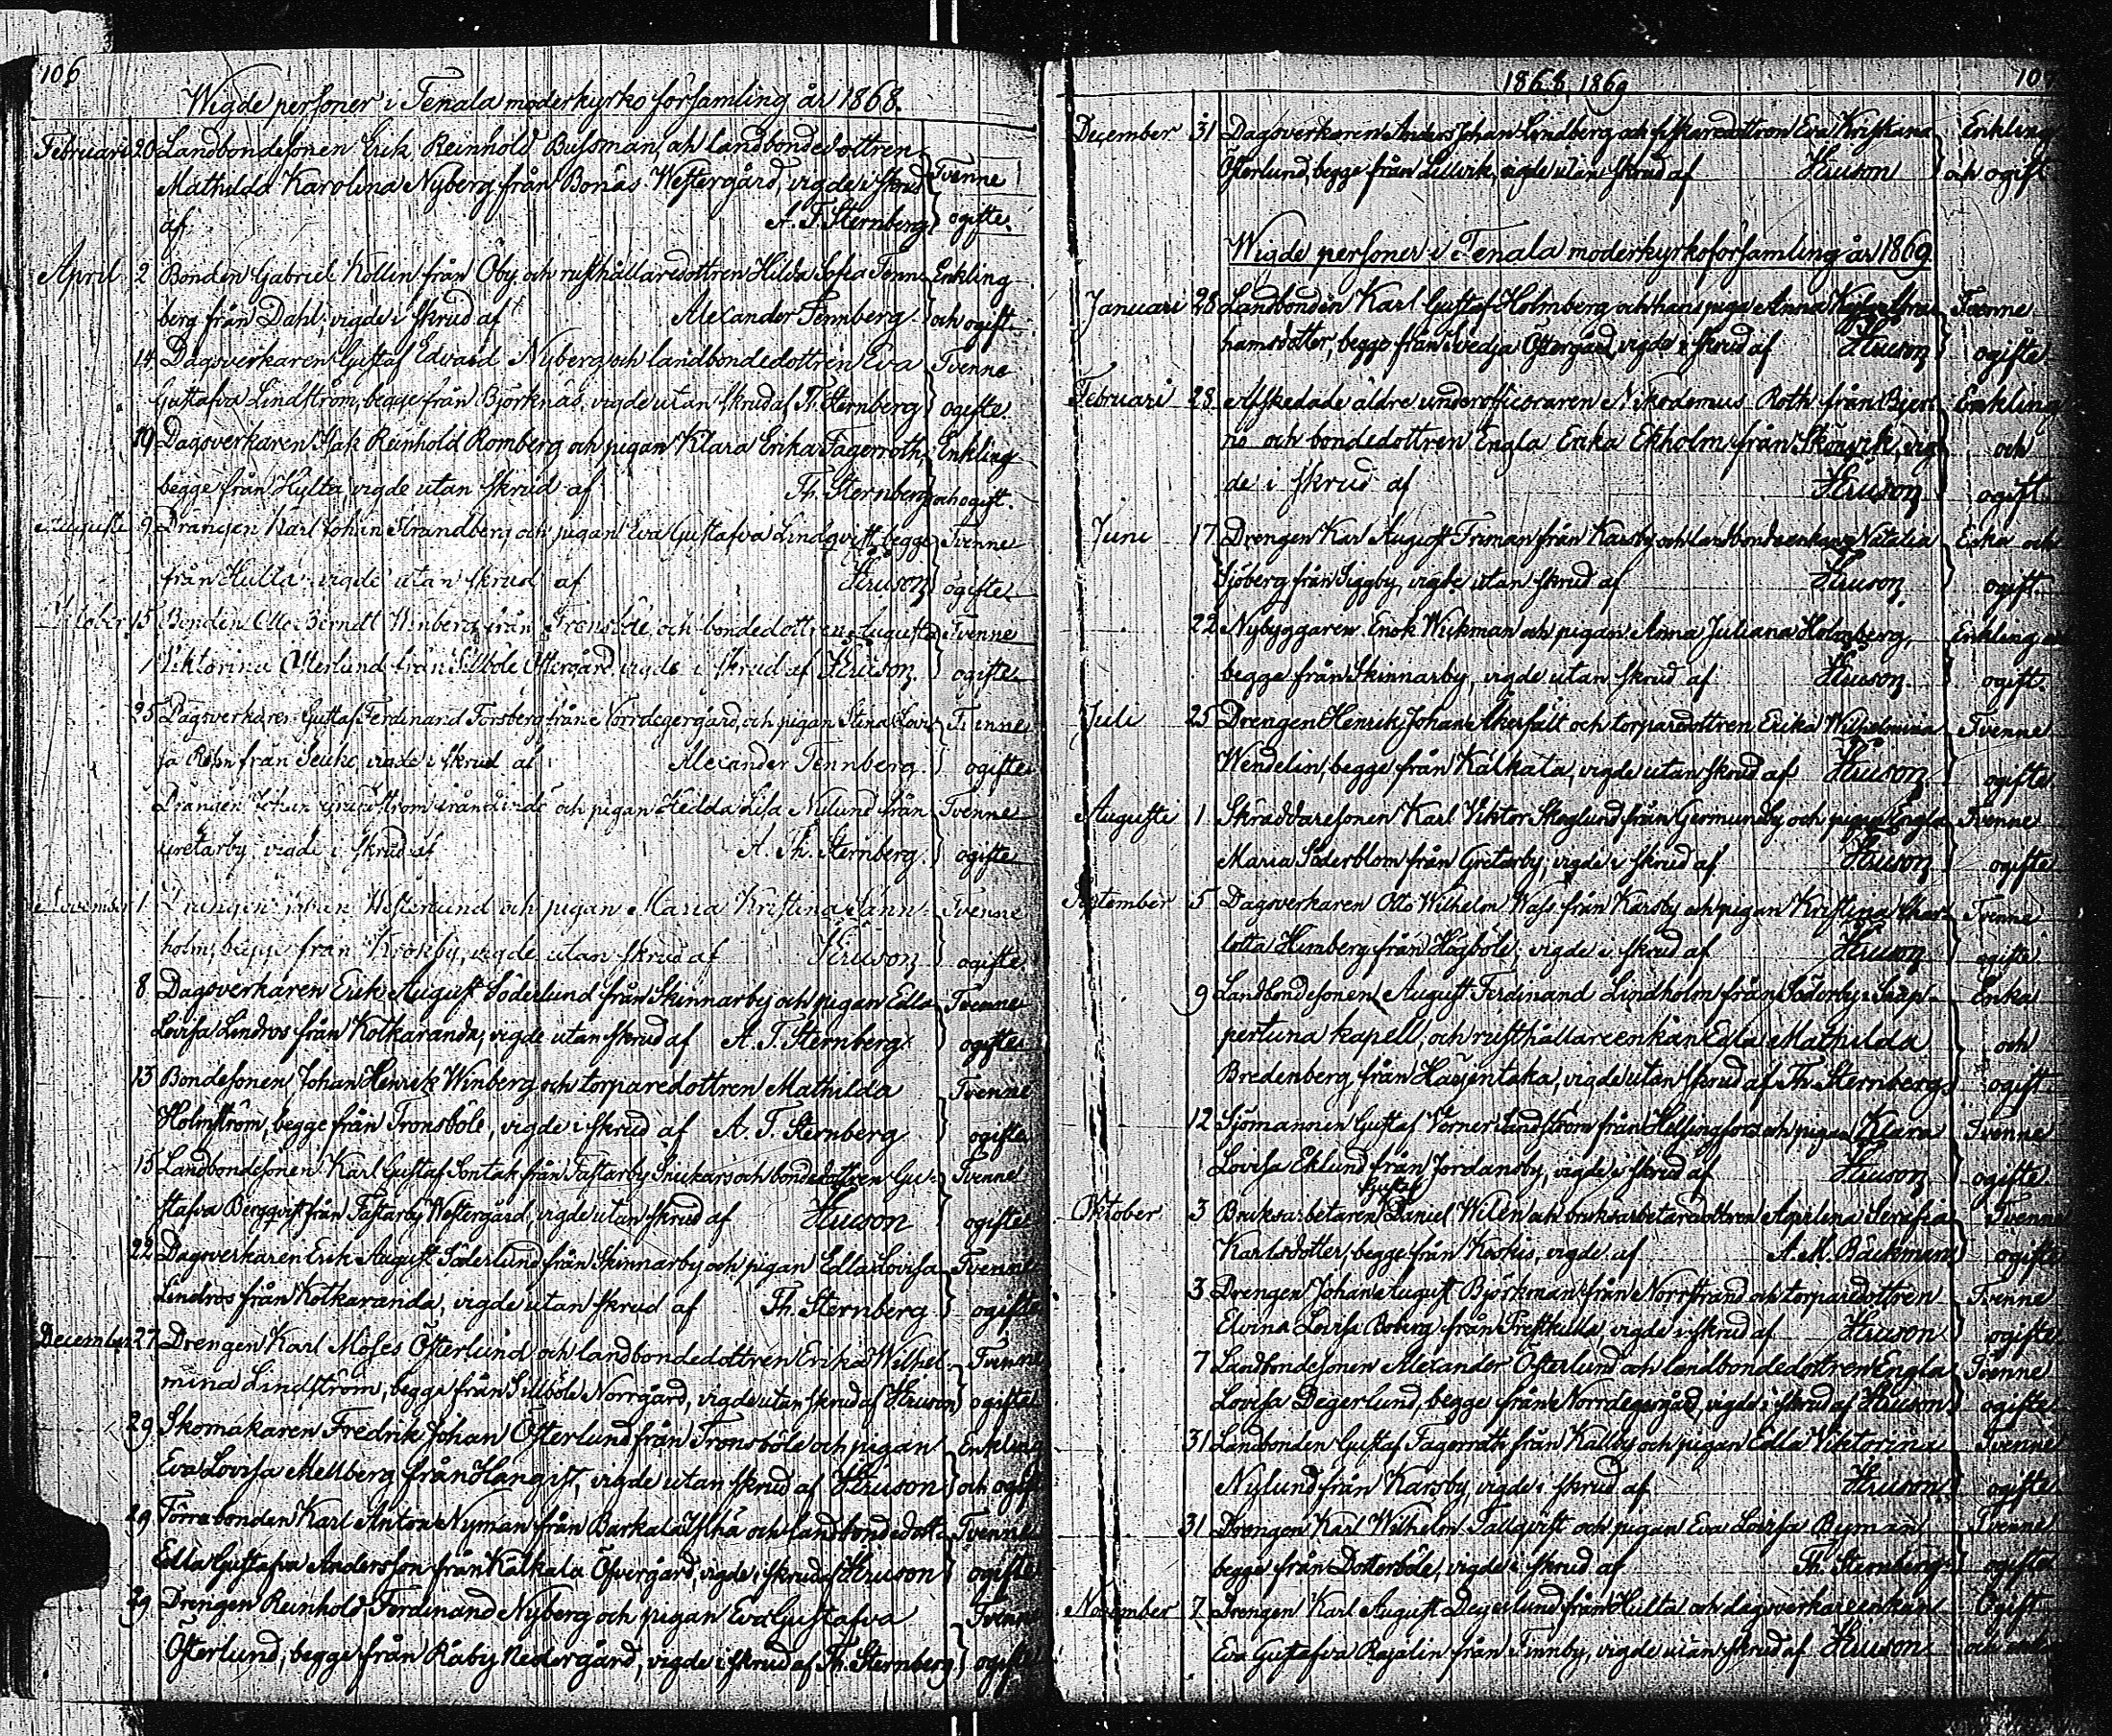 106
Wigde personer i Tenala moderkyrko församling år 1868.
Februari 20 Landbondesonen Erik Reinhold Bussman, och landbondedottren
Mathilda Karolina Nyberg, från Bonäs Westergård, vigde i skrud Tvenne
af A. T. Sternberg ogifte.
April 2 Bonden Gabriel Kollin från Öby och rusthållaredottren Hilda Sofia Tenn- Enkling
berg från Dahl; vigde i skrud af Alexander Tennberg och ogift
14 Dagsverkaren Gustaf Edvard Nyberg och landbondedottren Eva Tvenne
Gustafva Lindström, begge från Björknäs, vigde utan skrud af Th. Sternberg ogifte
19 Dagsverkaren Isak Reinhold Romberg och pigan Klara Erika Fagerroth, Enkling
begge från Hylta, vigde utan skrud af Th. Sternberg och ogift.
Augusti 9 Drängen Karl Johan Strandberg och pigan Eva Gustafva Lindqvist, begge Tvenne
från Hulta, vigde utan skrud af ogifte
Oktober 15 Bonden Otto Berndt Winberg från Tronsböle och bondedottren Augusta Tvenne
Viktorina Österlund från Sillböle Östergård, vigde i skrud af ogifte
25 Dagsverkaren Gustaf Ferdinand Forsberg från Norrdegergård, och pigan Stina Lovi- Tvenne
sa från vigde i skrud af Alexander Tennberg ogifte
Drängen Johan från och pigan Hedda Lisa Nylund från Tvenne
Gretarby, vigde i skrud af A. Th. Sternberg ogifte
November 1 Drängen Johan Westerlund och pigan Maria Kristina Tvenne
holm, begge från Krokby, vigde utan skrud af ogifte
8 Dagsverkaren Erik August Söderlund från Skinnarby och pigan Edla Tvenne
Lovisa Lindros från Kotkaranda, vigde utan skrud af A. T. Sternberg ogifte
13 Bondesonen Johan Henrik Winberg och torparedottren Mathilda Tvenne
Holmström, begge från Tronsböle, vigde i skrud af A. T. Sternberg ogifte
15 Landbondesonen Karl Gustaf Sontak från Fastarby Snickars och bondedottren Gu- Tvenne
stafva Bergqvist från Fastarby Westergård, vigde utan skrud af ogifte
22 Dagsverkaren Erik August Söderlund från Skinnarby och pigan Edla Lovisa Tvenne
Lindros från Kotkaranda, vigde utan skrud af Th. Sternberg ogifte
December 27 Drengen Karl Moses Österlund och landbondedottren Erika Wilhel- Tvenne
mina Lindström, begge från Sillböle Norrgård, vigde utan skrud af ogifte
29 Skomakaren Fredrik Johan Österlund från Tronsböle och pigan Enkling
Eva Lovisa Mellberg från Hangist, vigde utan skrud af och ogift
29 Förrabonden Karl Anton Nyman från Barkala och landbondedott. Tvenne
Edla Gustafva Andersson från Kälkala Öfvergård, vigde i skrud af ogifte
29 Drengen Reinhold Ferdinand Nyberg och pigan Eva Gustafva Tvenne
Österlund, begge från Råby Nedergård, vigde i skrud af Th. Sternberg ogifte
1868, 1869
107
December 31 Dagsverkaren Anders Johan Lindberg och fiskaredottren Eva Kristiana Enkling
Österlund, begge från Lillvik, vigde utan skrud af och ogift
Wigde personer i Tenala moderkyrkoförsamling år 1869.
Januari 28 Landbonden Karl Gustaf Holmberg och hans piga Anna Kajsa Abra- Tvenne
hamsdotter, begge från Svedja Östergård, vigde i skrud af ogifte
Februari 28 Afskedade äldre underofficeraren Nikodemus Roth från Bjer- Enkling
no och bondedottren Engla Erika Ekholm från Skogvik, vig- och
de i skrud af ogift
Juni 17 Drengen Karl August Friman från Karsby och landbondeenkan Natalia Enka och
Sjöberg från Siggby, vigde utan skrud af ogift
22 Nybyggaren Enok Wickman och pigan Anna Juliana Holmberg, Enkling och
begge från Skinnarby, vigde utan skrud af ogift.
Juli 25 Drengen Henrik Johan Åkerfält och torparedottren Erika Wilhelmina Tvenne
Wendelin, begge från Kälkala, vigde utan skrud af ogifte
Augusti 1 Skräddaresonen Karl Viktor Skoglund från Germundby och pigan Engla Tvenne
Maria Söderblom från Gretarby, vigde i skrud af ogifte
September 5 Dagsverkaren Otto Wilhelm Wass från Karsby och pigan Kristina Char- Tvenne
lotta Himberg från Högböle, vigde i skrud af ogifte
9 Landbondesonen August Ferdinand Lindholm från Söderby i Snap- Enka
pertuna kapell, och rusthållareenkan Edla Mathilda och
Bredenberg från vigde utan skrud af Th. Sternberg ogift
12 Sjömannen Gustaf Verner Lindström från Helsingfors och pigan Klara Tvenne
Lovisa Eklund från Jordansby, vigde i skrud af ogifte
Gustaf
Oktober 3 Bruksarbetaren Daniel Wilén och bruksarbetaredottren Apelina Serafia Tvenne
Karlsdotter, begge från Koskis, vigde af A. M. Bäckman ogifte
3 Drengen Johan August Björkman från Norrstrand och torparedottren Tvenne
Elvina Lovisa Boberg från Prestkulla, vigde i skrud af ogifte
7 Landbondesonen Alexander Österlund och landbondedottren Engla Tvenne
Lovisa Degerlund, begge från Norrdegergård, vigde i skrud af ogifte
31 Landbonden Gustaf Fagerroth från Kallby och pigan Edla Viktorina Tvenne
Nylund från Karsby, vigde i skrud af ogifte
31 Drengen Karl Wilhelm Tallqvist och pigan Eva Lovisa Byman Tvenne
begge från Dotterböle, vigde i skrud af Th. Sternberg ogifte
November 7 Drengen Karl August Degerlund från Hulta och dagsverkareenkan Ogift
Eva Gustafva Rajalin från Finnby, vigde utan skrud af och enka